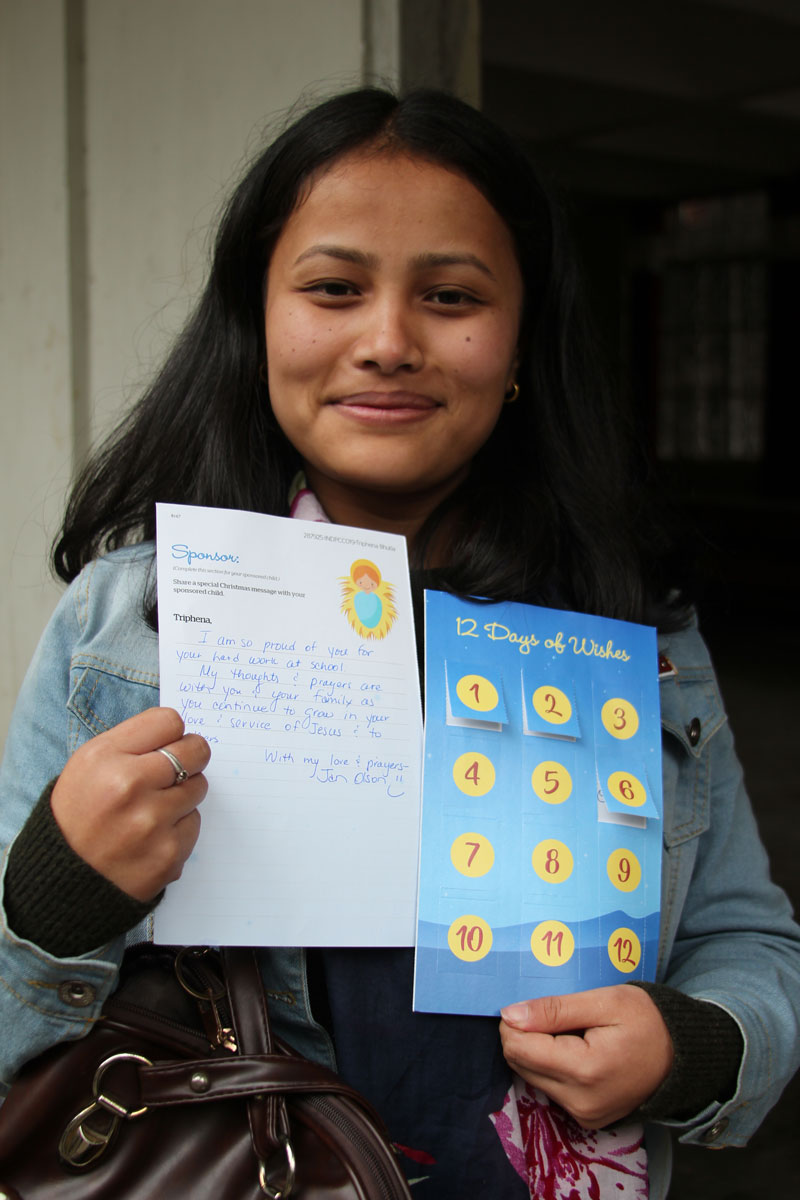 Sponsor:
(Complete this section for your sponsored child.)
Share a special Christmas message with your
sponsored child.
Triphena,
I am so proud of you for
your hard work at school.
My thoughts & prayers are
with you & your family as
you continue to grow in your
love & service of Jesus & to
With my love & prayers-
Jan Olson !!
12 Days of Wishes
1 2 3
4 5 6
7 8 9
10 11 12